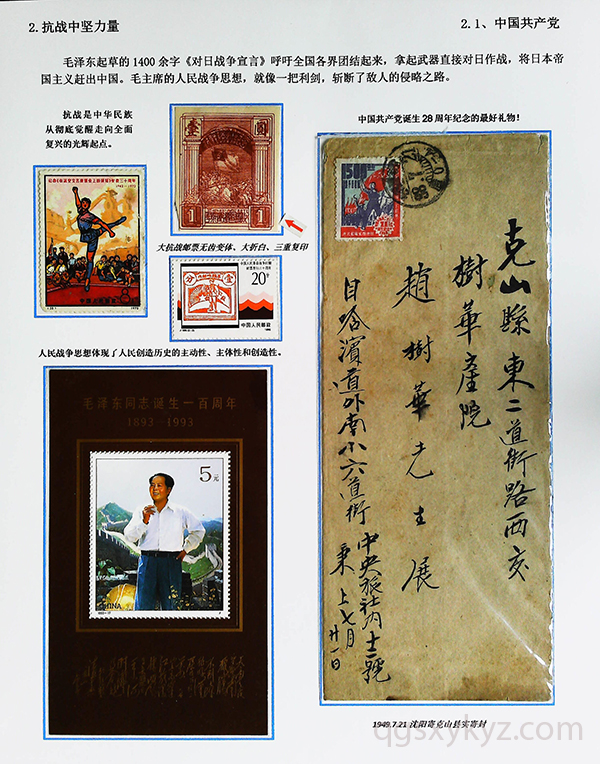 2.抗战中坚力量
2.1、中国共产党
毛泽东起草的1400余字《对日战争宣言》呼吁全国各界团结起来，拿起武器直接对日作战，将日本帝
国主义赶出中国。毛主席的人民战争思想，就像一把利剑，斩断了敌人的侵略之路。
抗战是中华民族
从彻底觉醒走向全面
复兴的光辉起点。
壹
圆
1
1
大抗战邮票无齿变体、大折白、三重复印
8
20分
中国人民邮政
人民战争思想体现了人民创造历史的主动性、主体性和创造性。
毛泽东同志诞生一百周年
1893-1993
5元
CHINA
中国共产党诞生28周年纪念的最好礼物！
克山縣東二道街路西亥
樹華產院
趙樹華先生展
自哈濱道外南小六道街
中央旅社內十一號
秉上七月廿一日
1949.7.21沈阳寄克山县实寄封
qgsxykyz.com